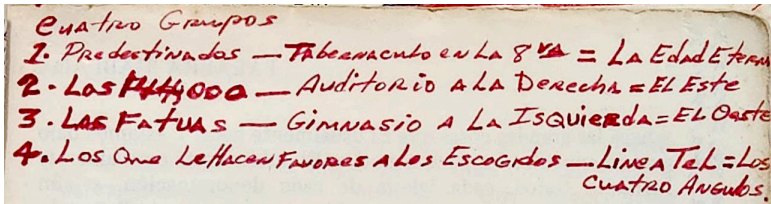 Cuatro Grupos
1. Predestinados — Tabernaculo en La 8va = La Edad Eterna
2. Los 144,000 — Auditorio a La Derecha = El Este
3. Las Fatuas — Gimnasio a La Isquierda = El Oeste
4. Los Que Le Hacen Favores a Los Escogidos — Linea Tel. = Los
Cuatro Angulos.